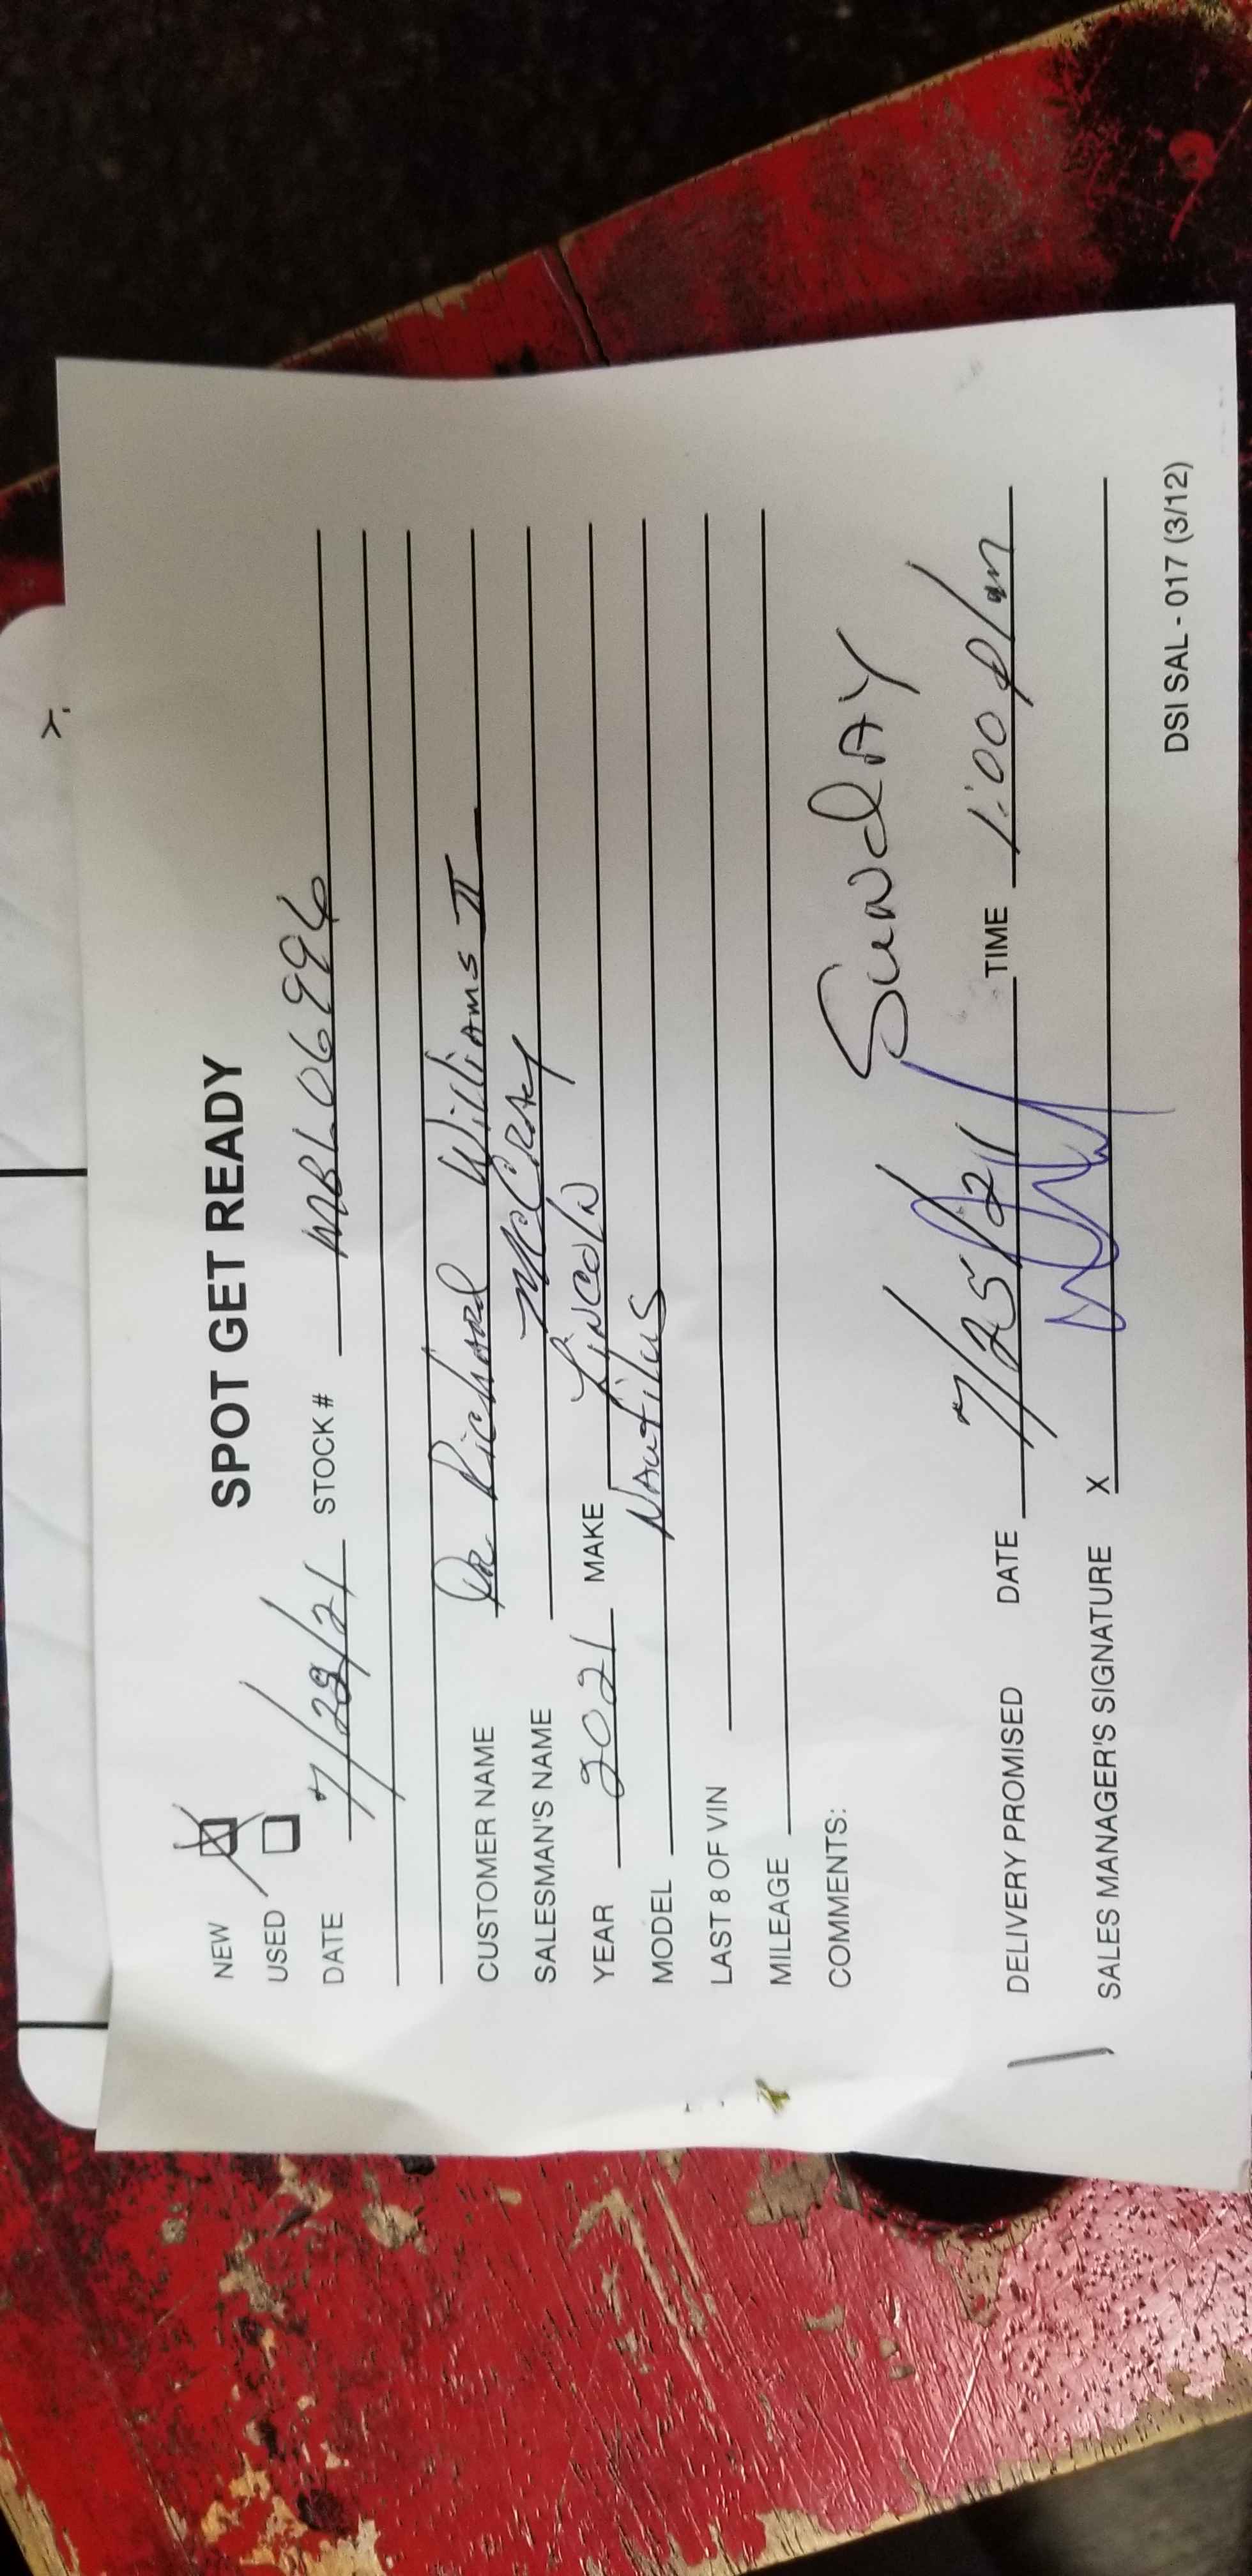 SPOT GET READY
NEW
USED
DATE 7/23/21 STOCK # MBL06996
CUSTOMER NAME Dr Richard Williams II
SALESMAN'S NAME McCray
YEAR 2021 MAKE Lincoln
MODEL Nautilus
LAST 8 OF VIN
MILEAGE
COMMENTS:
SundAY
DELIVERY PROMISED DATE 7/25/21 TIME 1:00 p/m
SALES MANAGER'S SIGNATURE X
DSI SAL - 017 (3/12)